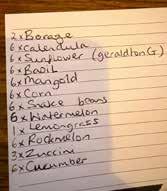 2x Borage
6x calendula
6x Sunflower (geraldton G)
6x Basil
6x Marigold
6x Corn
6x Snake beans
6x Watermelon
1x Lemongrass
6x Rockmelon
3x Zuccini
6x Cucumber